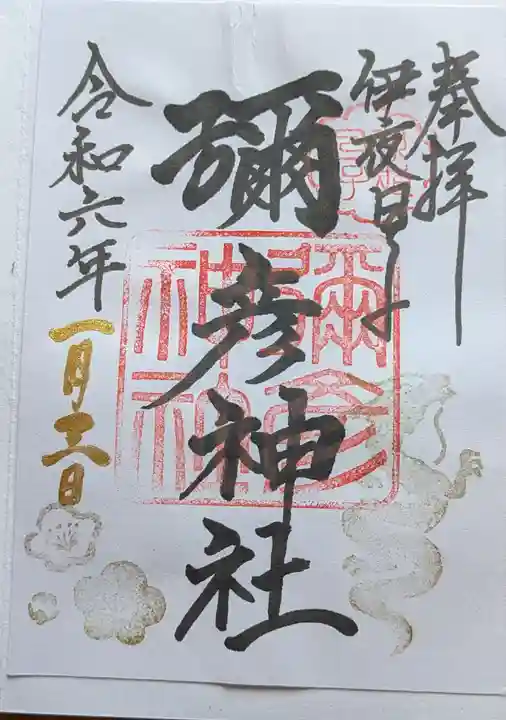 奉拝
伊夜日子
彌彦神社
彌彦
神社
令和六年一月
日